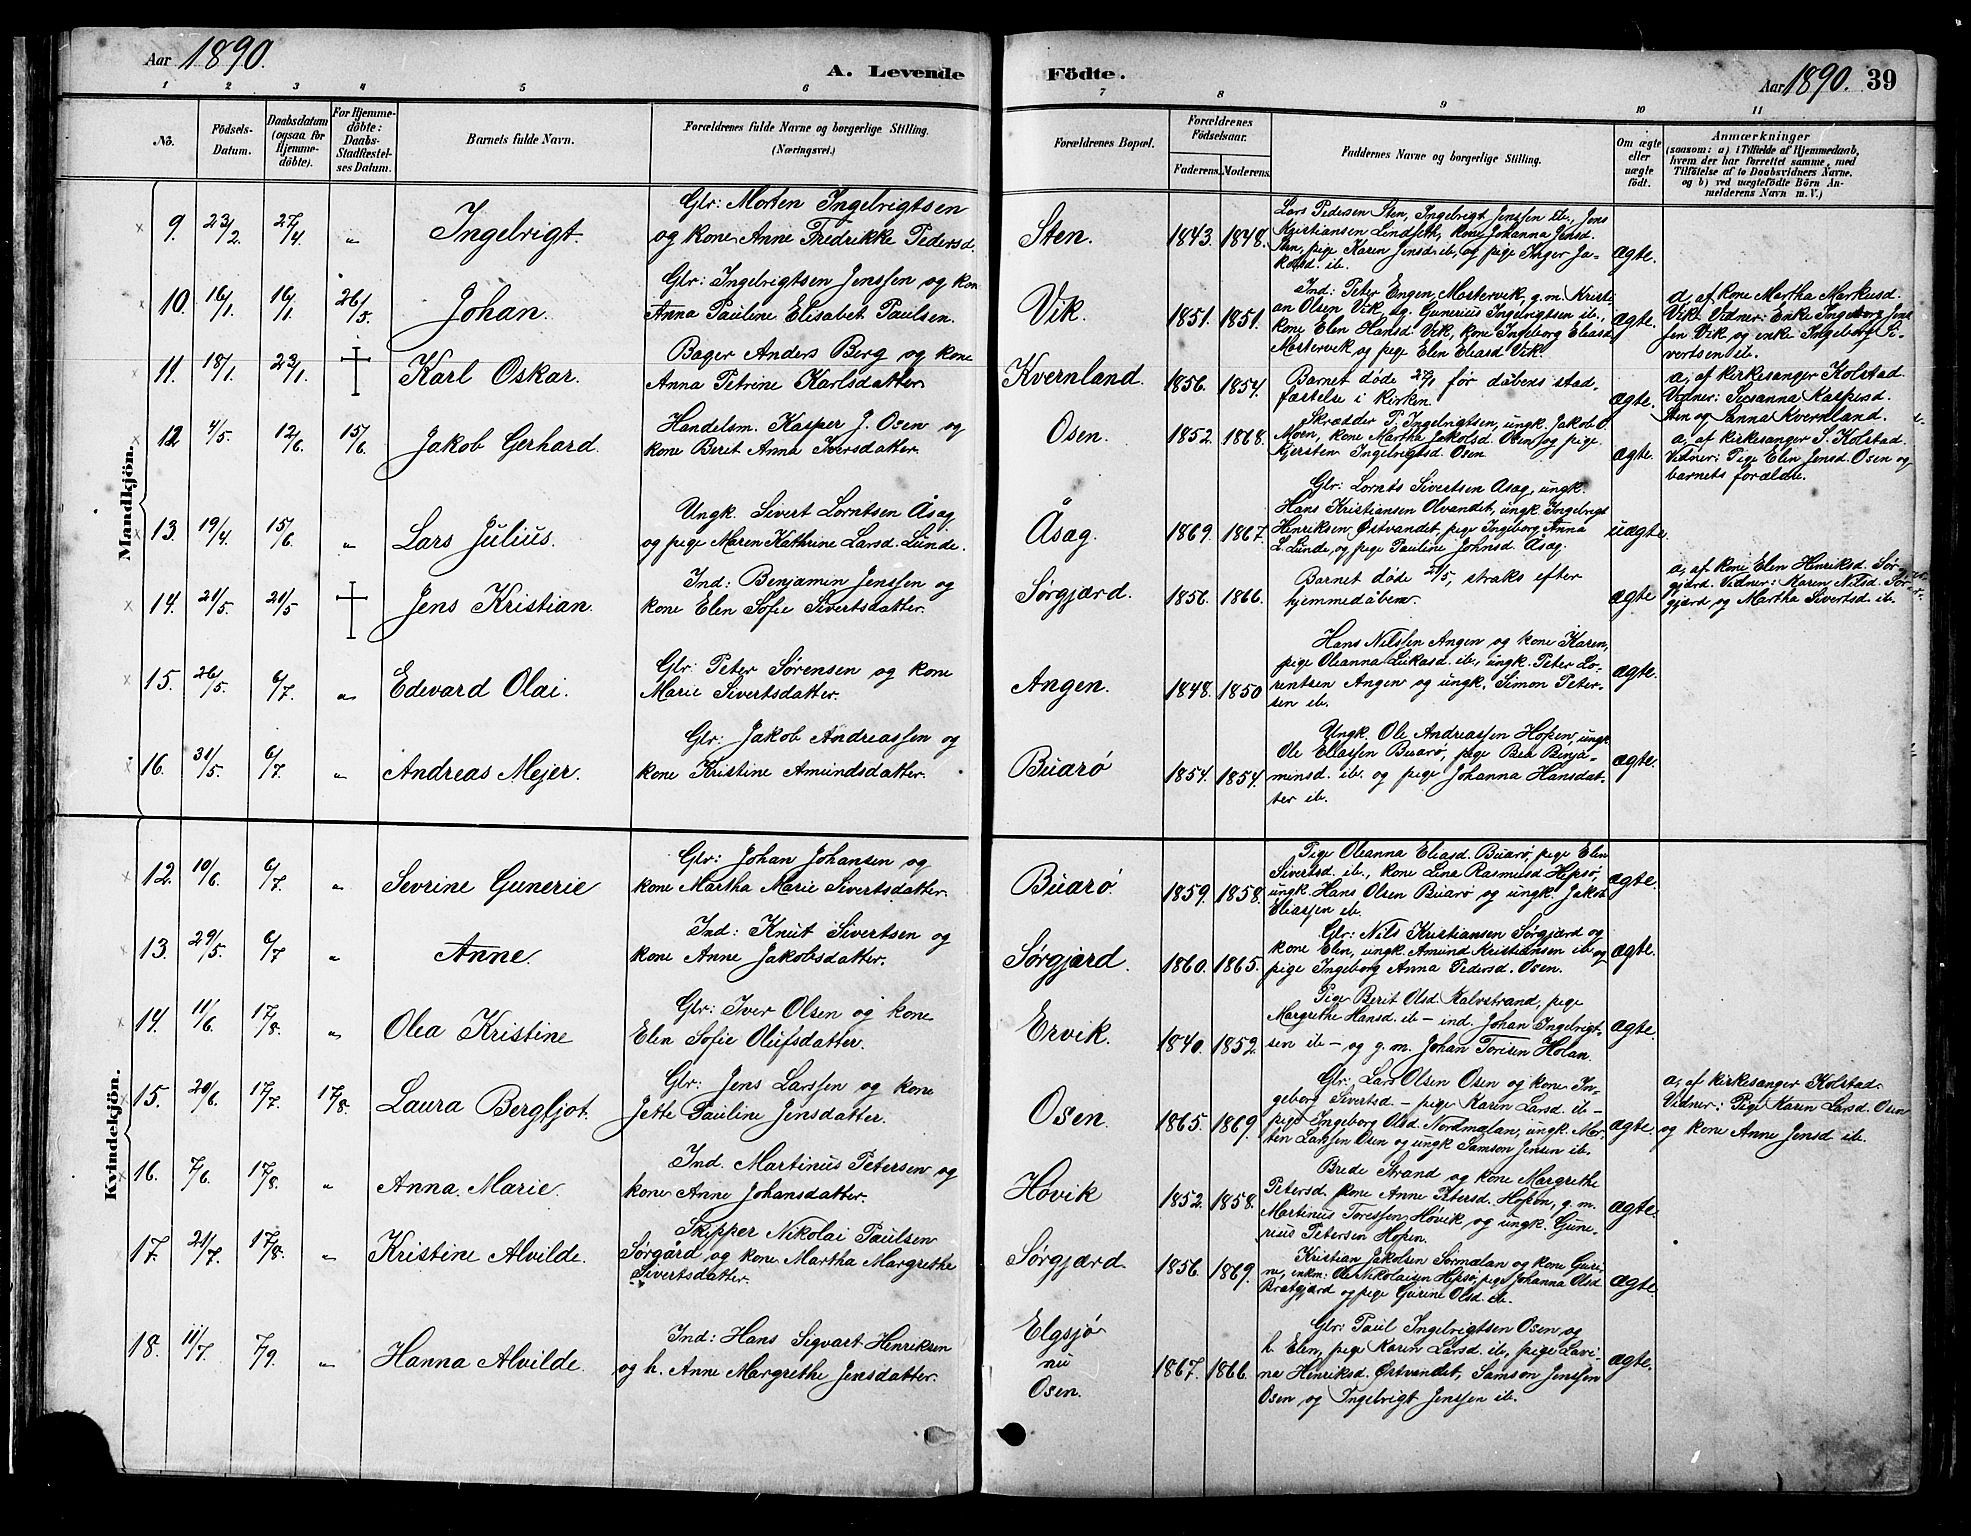 Aar 1890.
A. Levende Födte.
Aar 1890. 39
1 2 3 4 5 6 7 8 9 10 11
No.
Födsels-
Datum.
Daabsdatum
(ogsaa for
Hjemme-
döbte).
For Hjemme-
döbte:
Daabs-
Stadfæstel-
ses Datum.
Barnets fulde Navn.
Forældrenes fulde Navne og borgerlige Stilling.
(Næringsvei.)
Forældrenes Bopæl.
Forældrenes
Födselsaar.
Faderens. Moderens.
Faddernes Navne og borgerlige Stilling.
Om ægte
eller
uægte
födt.
Anmærkninger
(saasom: a) i Tilfælde af Hjemmedaab,
hvem der har forrettet samme, med
Tilföielse af to Daabsvidners Navne,
og b) ved uægtefödte Börn An-
melderens Navn m. V.)
Mandkjön.
9. 23/2. 27/4 „ Ingebrigt.
Glr: Morten Ingebrigtsen
og kone Anne Fredrikke Pedersd.
Sten. 1843. 1848.
Lars Pedersen Sten, Ingebrigt Jenssen ib., Jens
Kristiansen Lindseth, kone Johanna Jensd.
Sten, pige Karen Jensd. ib. og pige Inger Ja-
kobsd. ib.
ægte.
10. 16/1. 16/1. 26/5. Johan.
Glr: Ingebrigtsen Jenssen og kone
Anna Pauline Elisabet Paulsen.
Vik. 1851. 1851.
Ind: Peter Engen, Mostervik, g.m. Kristi-
an Olsen Vik, sg. Gunerius Ingebrigtsen ib.,
kone Elen Hansd. Vik, kone Ingeborg Eliasd.
Mostervik og pige Elen Eliasd. Vik.
ægte.
a, af kone Martha Markusd.
Vik. Vidner: Enke Ingeborg Jens-
sen Vik og enke Ingeborg Si-
vertsen ib.
11. 18/1. 23/1. † Karl Oskar.
Bager Anders Berg og kone
Anna Petrine Karlsdatter.
Kvernland. 1856. 1854.
Barnet døde 27/1 før dåbens stad-
fæstelse i kirken.
ægte.
a, af kirkesanger Kolstad.
Vidner: Susanna Kaspersd.
Sten og Sanna Kvernland.
12 4/5. 12/6. 15/6 Jakob Gerhard.
Handelsm. Kasper J. Osen og
kone Berit Anna Iversdatter.
Osen. 1852. 1868.
Skrædder P. Ingebrigtsen, ungk. Jakob O.
Moen, kone Martha Jakobsd. Osen og pige
Kjersten Ingebrigtsd. Osen.
ægte.
a, af kirkesanger S. Kolstad.
Vidner: Pige Elen Jensd. Osen og
barnets forældre.
13. 19/4 15/6. „ Lars Julius.
Ungk. Sivert Lorntsen Åsag
og pige Maren Kathrine Larsd. Lunde.
Åsag. 1869. 1867.
Glr: Lornts Sivertsen Åsag, ungk.
Hans Kristiansen Olvandet, ungk. Ingebrigt
Henriksen Østvandet, pige Ingeborg Anna
L. Lunde, og pige Pauline Johnsd. Åsag.
uægte.
14. 21/5. 21/5 † Jens Kristian.
Ind: Benjamin Jenssen og
kone Elen Sofie Sivertsdatter.
Sørgjærd. 1856. 1866.
Barnet døde 21/5, straks efter
hjemmedåben.
ægte
a, af kone Elen Henriksd. Sør-
gjærd. Vidner: Karen Nilsd. Sør-
gjærd og Martha Sivertsd. ib.
15. 26/5. 6/7. „ Edevard Olai.
Glr: Peter Sørensen og kone
Marie Sivertsdatter.
Angen. 1848. 1850
Hans Nilssen Angen og kone Karen,
pige Oleanna Lukasd. ib., ungk. Peter Lo-
rentsen Angen og ungk. Simon Peter-
sen ib.
ægte.
16. 31/5. 6/7. „ Andreas Mejer.
Glr: Jakob Andreassen og
kone Kristine Amundsdatter.
Buarø 1854. 1854.
Ungk. Ole Andreassen Hopen, ungk.
Ole Eliassen Buarø, pige Bea Benja-
minsd. ib. og pige Johanna Hansdat-
ter ib.
ægte.
Kvindekjön.
12. 10/6. 6/7. „ Sevrine Gunerie
Glr: Johan Johansen og
kone Martha Marie Sivertsdatter.
Buarø. 1859. 1858.
Pige Oleanna Eliasd. Buarø, pige Elen
Sivertsd. ib., kone Lina Rasmusd. Hepsø,
ungk. Hans Olsen Buarø og ungk. Jakob
Eliassen ib.
ægte.
13. 29/5. 6/7 „ Anne.
Ind: Knut Sivertsen og
kone Anne Jakobsdatter.
Sørgjærd. 1860. 1865.
Glr: Nils Kristiansen Sørgjærd og
kone Elen, ungk. Amund Kristiansen ib. og
pige Ingeborg Anna Pedersd. Osen.
ægte.
14. 11/6. 17/8. „ Olea Kristine
Glr: Iver Olsen og kone
Elen Sofie Olufsdatter.
Ervik. 1840. 1852.
Pige Berit Olsd. Kalvstrand, pige
Margrethe Hansd. ib – ind. Johan Ingebrigt-
sen ib – og g.m. Johan Torisen Holan.
ægte.
15. 20/6 17/7. 17/8. Laura Bergljot.
Glr: Jens Larssen og kone
Jette Pauline Jensdatter.
Osen. 1865. 1869.
Glr: Lars Olsen Osen og kone In-
geborg Sivertsd – pige Karen Larsd. ib –
pige Ingeborg Olsd. Nordmælan, ungk. Mor-
ten Larssen Osen og ungk Samson Jensen ib.
ægte.
a, af kirkesanger Kolstad.
Vidner: Pige Karen Larsd. Osen
og kone Anne Jensd ib.
16. 7/6. 17/8. „ Anna Marie.
Ind. Martinus Petersen og
kone Anne Johansdatter.
Hovik 1852. 1858.
Brede Strand og kone Margrethe
Petersd. kone Anne Petersd. Hopen, g.m.
Martinus Toressen Hovik og ungk. Gune-
rius Petersen Hopen.
ægte.
17. 21/7. 17/8. „ Kristine Alvilde.
Skipper Nikolai Paulsen
Sørgård og kone Martha Margrethe
Sivertsdatter.
Sørgjærd. 1856. 1869.
Kristian Jakobsen Sørmælan og kone Guri-
ne, enkm: Ole Nikolaisen Hepsø, pige Johanna Olsd.
Bratgjærd og pige Gurine Olsd. ib.
ægte.
18. 11/7. 7/9. „ Hanna Alvilde.
Ind: Hans Sigvart Henriksen
og h. Anne Margrethe Jensdatter.
Elgsjø
nu
Osen.
1867. 1866.
Glr: Paul Ingebrigtsen Osen og
h. Elen, pige Karen Larsd. ib, pige Lavi-
na Henriksd. Østvandet, Samson Jenssen
Osen og Ingebrigt Jenssen ib.
ægte.